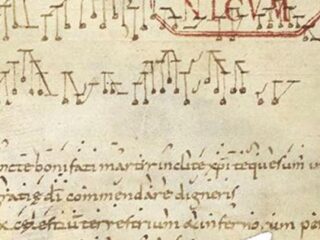 ncte bonifati martir inclite xpi tequesum
di commendare digneris
x celestiū terrestrium & infernorum